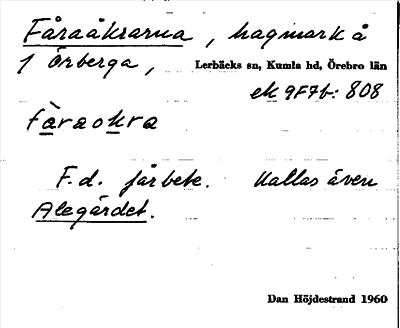 Fåraåkrarna, hagmark å
1 Örberga, Lerbäcks sn, Kumla hd, Örebro län
ek 9F7b: 808
fàraokra
F.d. fårbete. Kallas även
Alegärdet.
Dan Höjdestrand 1960